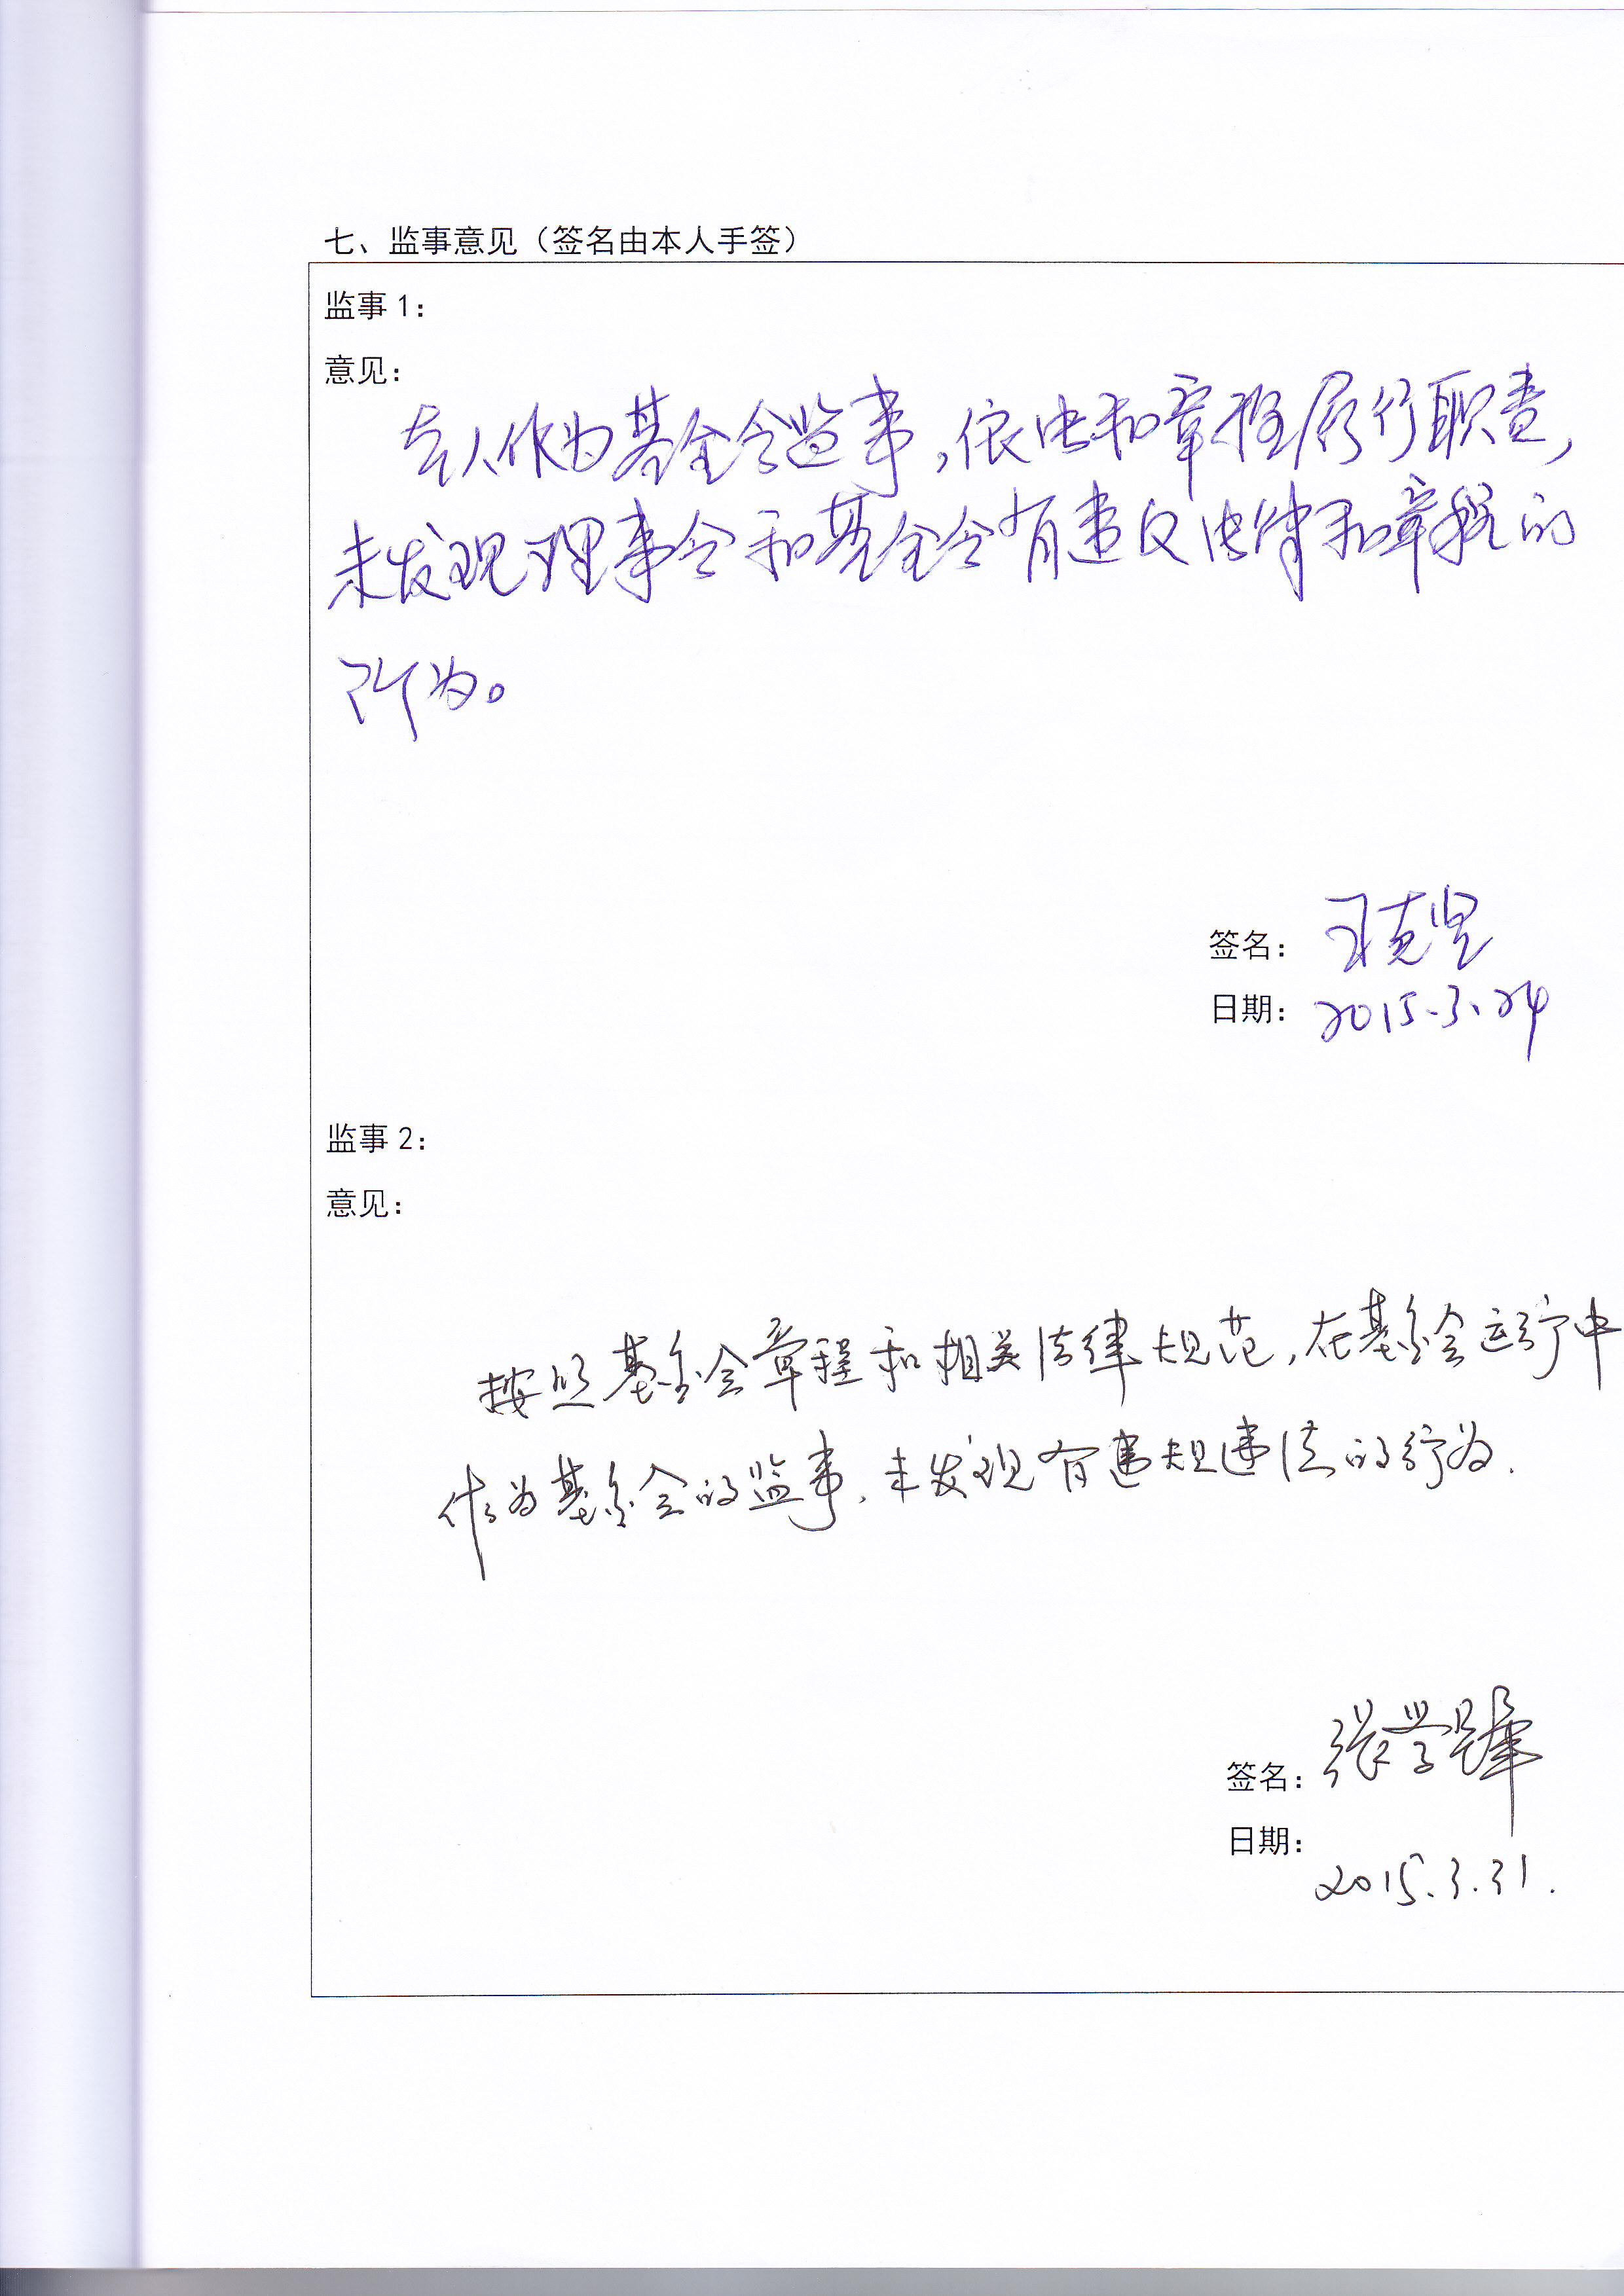 七、监事意见（签名由本人手签）
监事 1：
意见：
本人作为基金会监事，依法和章程履行职责，
未发现理事会和基金会有违反法律和章程的
所为。
签名：
日期：2015.3.24
监事 2：
意见：
按照基金会章程和相关法律规范，在基金会运行中
作为基金会的监事，未发现有违规违法的行为.
签名：张学
日期：
2015.3.31.